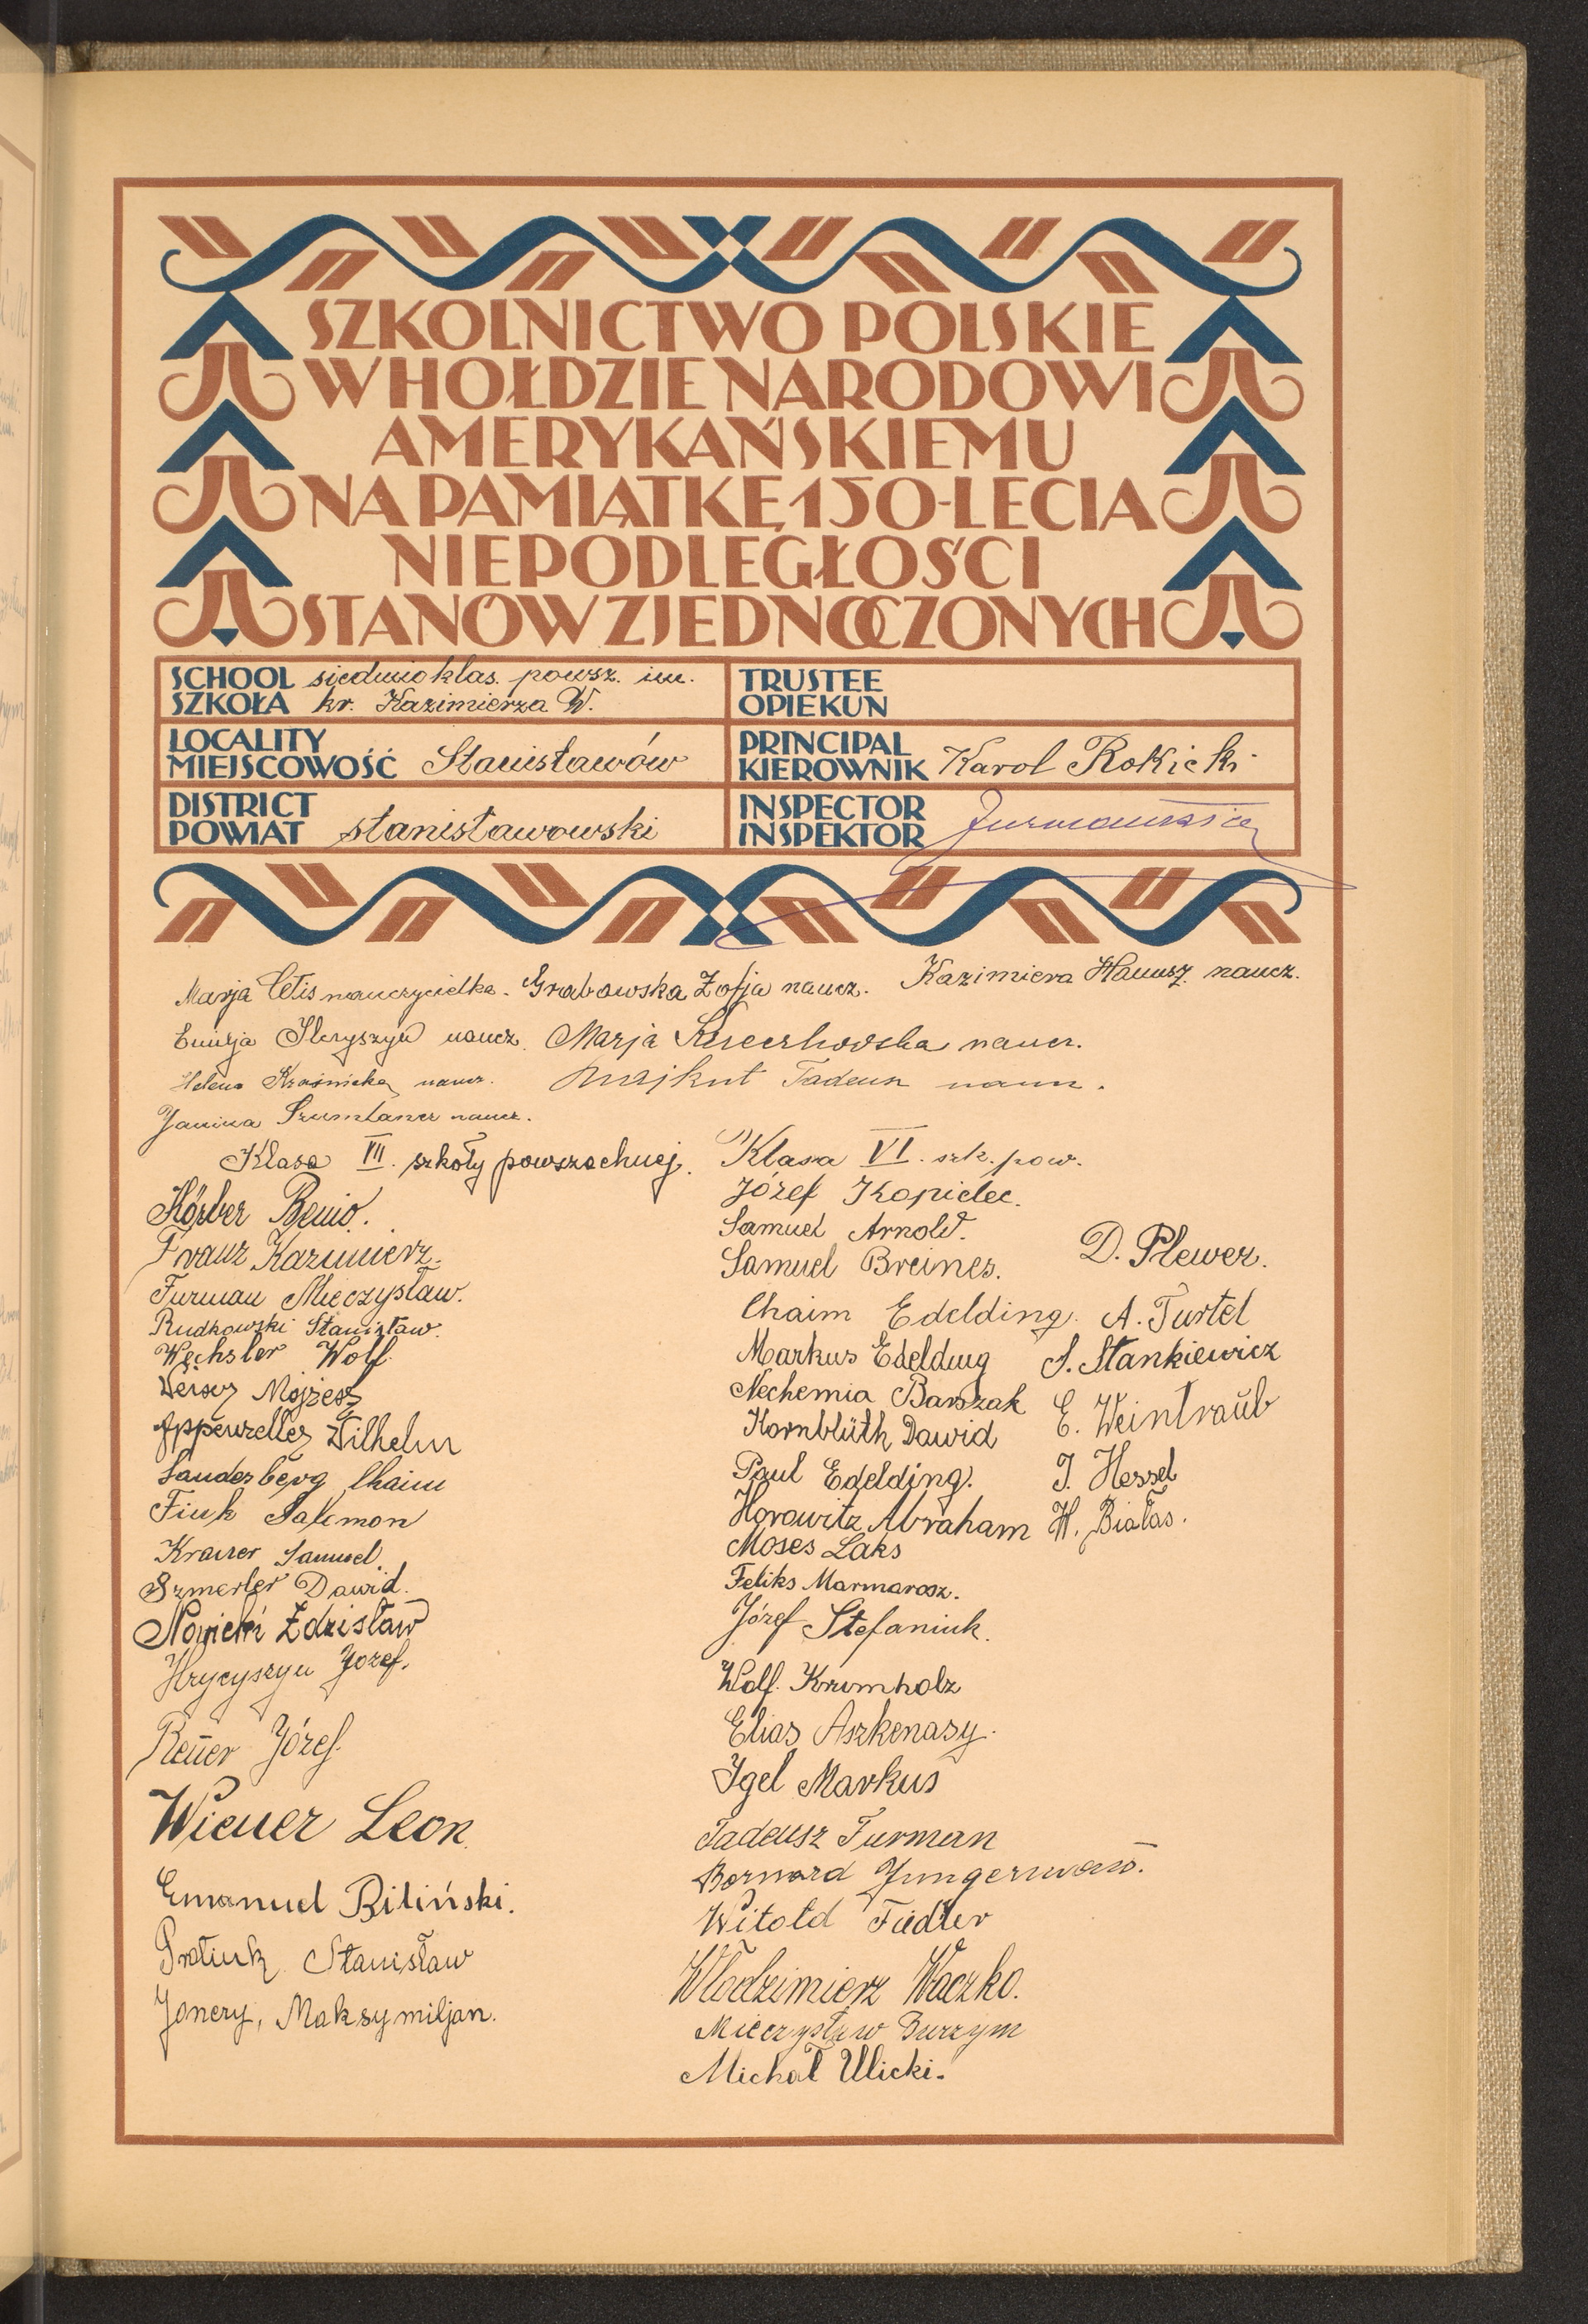 SZKOLNICTWO POLSKIE
W HOŁDZIE NARODOWI
AMERYKAŃSKIEMU
NA PAMIĄTKĘ 150-LECIA
NIEPODLEGŁOŚCI
STANÓW ZJEDNOCZONYCH
SCHOOL siedmioklas. powsz. im.
SZKOŁA kr. Kazimierza W.
TRUSTEE
OPIEKUN
LOCALITY
MIEJSCOWOŚĆ Stanisławów
PRINCIPAL
KIEROWNIK Karol Rokicki
DISTRICT
POWIAT stanisławowski
INSPECTOR
INSPEKTOR
Marja nauczycielka. Grabowska Zofja naucz. Kazimiera Hanusz naucz.
naucz. Marja naucz.
Helena Kraśnicka naucz. Majkut Tadeusz naucz.
Janina naucz.
Klasa VII. szkoły powszechnej.
Körber Benio.
Franz Kazimierz.
Furman Mieczysław.
Rudkowski Stanisław.
Wechsler Wolf.
Mojżesz
Appenzeller Wilhelm
Landesberg Chaim
Fink Salomon
Samuel.
Szmerler Dawid.
Nowicki Zdzisław
Hrycyszyn Jozef.
Józef.
Wiener Leon.
Emanuel Biliński.
Stanisław
Jonery, Maksymiljan.
Klasa VI. szk. pow.
Józef Kopielec.
Samuel Arnold.
Samuel Breines.
Chaim Edelding.
Markus Edelding
Nechemia Barszak
Kornblüth Dawid
Paul Edelding.
Horowitz Abraham
Moses Laks
Feliks Marmarosz.
Józef Stefaniuk.
Wolf. Krumholz
Elias Aszkenasy.
Igel Markus
Tadeusz Furman
Bernard
Witold Fiedler
Włodzimierz Waczko.
Mieczysław Burzym
Michał Ulicki.
D. Plewer.
A. Turtel
S. Stankiewicz
E. Weintraub
J. Hessel
H. Białas.